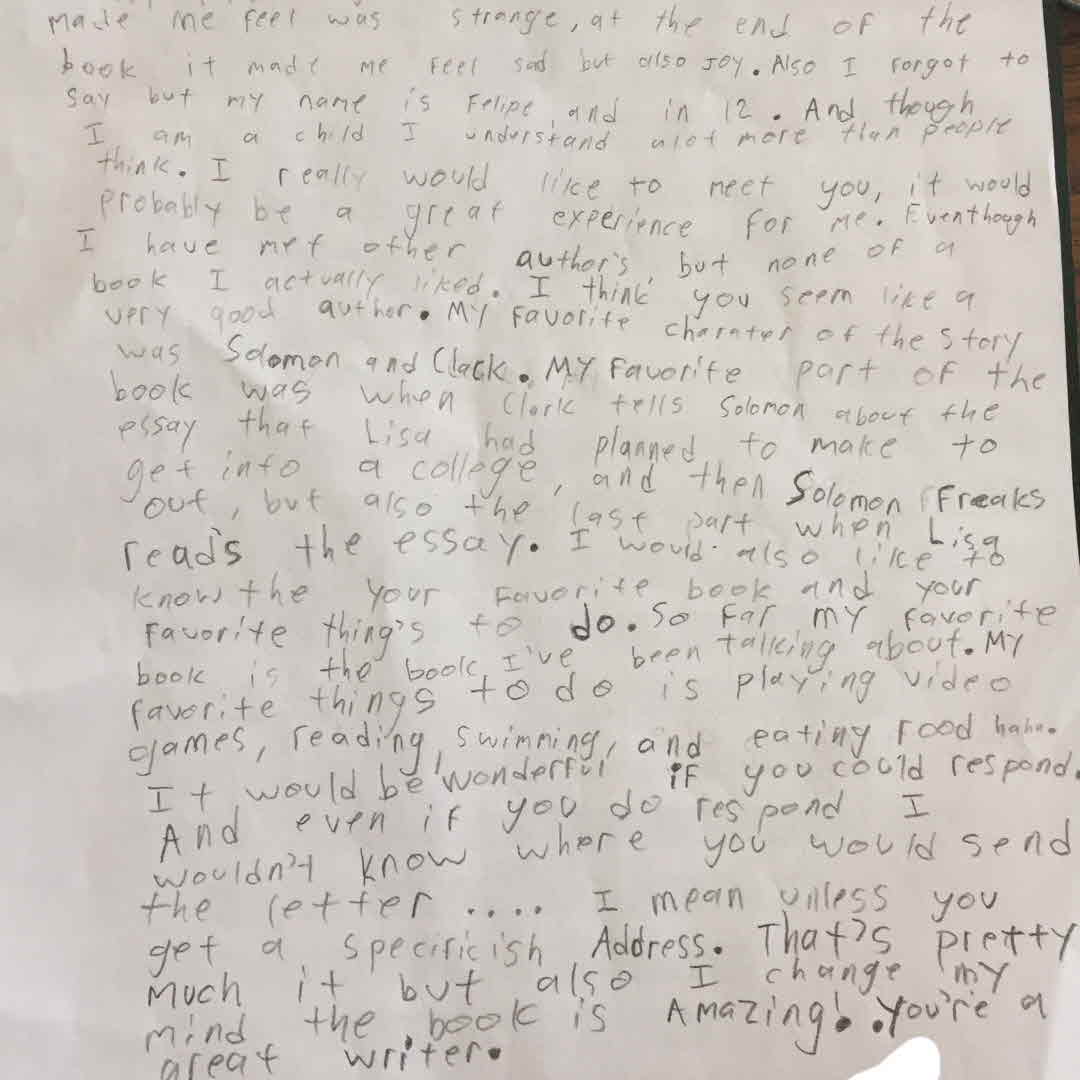 made me feel was strange, at the end of the
book it made me feel sad but also joy. Also I forgot to
say but my name is Felipe, and in 12. And though
I am a child I understand alot more than people
think. I really would like to meet you, it would
probably be a great experience for me. Eventhough
I have met other author's, but none of a
book I actually liked. I think you seem like a
very good author. My favorite charater of the story
was Solomon and Clack. My favorite part of the
book was when Clark tells Solomon about the
essay that Lisa had planned to make to
get into a college, and then Solomon Freaks
out, but also the last part when Lisa
read's the essay. I would also like to
know the your favorite book and your
favorite thing's to do. So far my favorite
book is the book I've been talking about. My
favorite things to do is playing video
games, reading, swimming, and eating food haha.
It would be wonderful if you could respond.
And even if you do respond I
wouldn't know where you would send
the letter .... I mean unless you
get a specificish Address. That's pretty
much it but also I change my
mind the book is Amazing! You're a
great writer.